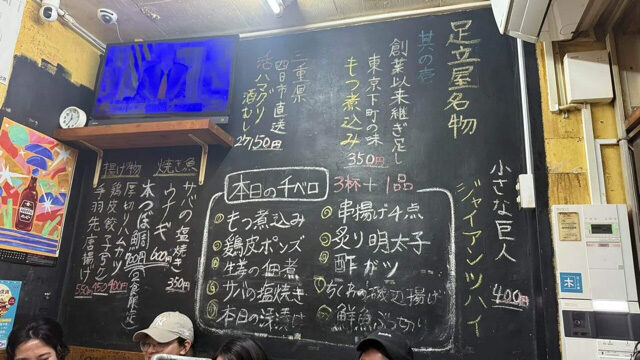 足立屋名物
其の壱
創業以来継ぎ足し
東京下町の味
もつ煮込み
350円
小さな巨人
ジャイアンツハイ
400円
三重県
四日市直送
活ハマグリ
酒むし
焼き魚
サバの塩焼き
350円
ウナギ
600円
揚げ物
本つぼ鯛
厚切りハムカツ
鶏皮餃子
手羽先唐揚げ
550円
本日の千ベロ
3杯+1品
もつ煮込み
鶏皮ポンズ
生姜の佃煮
サバの塩焼き
本日の浅漬け
串揚げ4点
炙り明太子
酢ガツ
ちくわの磯辺揚げ
鮮魚ぶつ